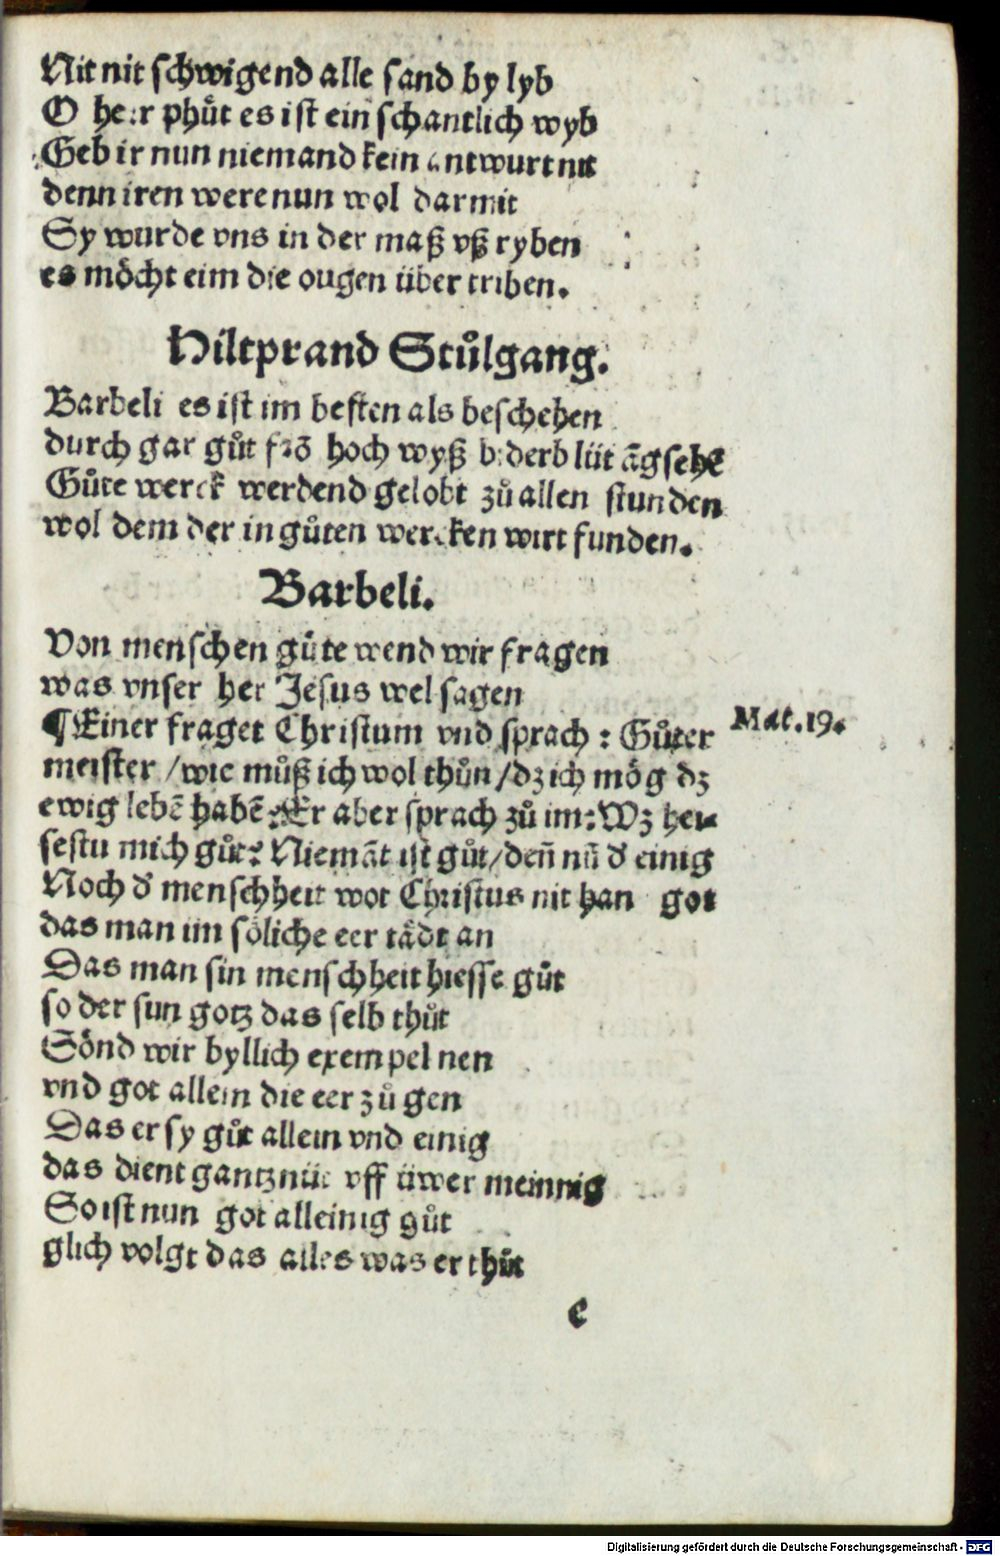 Nit nit schwigend alle sand by lyb
O herr phuͦt es ist ein schantlich wyb
Geb ir nun niemand kein antwurt nit
denn iren were nun wol darmit
Sy wurde vns in der maß vß ryben
es möcht eim die ougen über triben.
Hiltprand Stuͦlgang.
Barbeli es ist im besten als beschehen
durch gar guͦt frō hoch wyß biderb lüt āgsehē
Guͦte werck werdend gelobt zuͦ allen stunden
wol dem der in guͦten wercken wirt funden.
Barbeli.
Von menschen guͤte wend wir fragen
was vnser her Jesus wel sagen
¶Einer fraget Christum vnd sprach : Guͦter
Mat.19.
meister /wie muͦß ich wol thuͦn/dz ich mög dz
ewig lebē habē:Er aber sprach zuͦ im:Wz hei-
sestu mich guͦt? Niemāt ist guͦt/deñ nū d' einig
Noch d' menschheit wot Christus nit han got
das man im söliche eer tädt an
Das man sin menschheit hiesse guͦt
so der sun gotz das selb thuͦt
Sönd wir byllich exempel nen
vnd got allein die eer zuͦ gen
Das er sy guͦt allein vnd einig
das dient gantz nüt vff üwer meinnig
So ist nun got alleinig guͦt
glich volgt das alles was er thuͦt
c
Digitalisierung gefördert durch die Deutsche Forschungsgemeinschaft - DFG